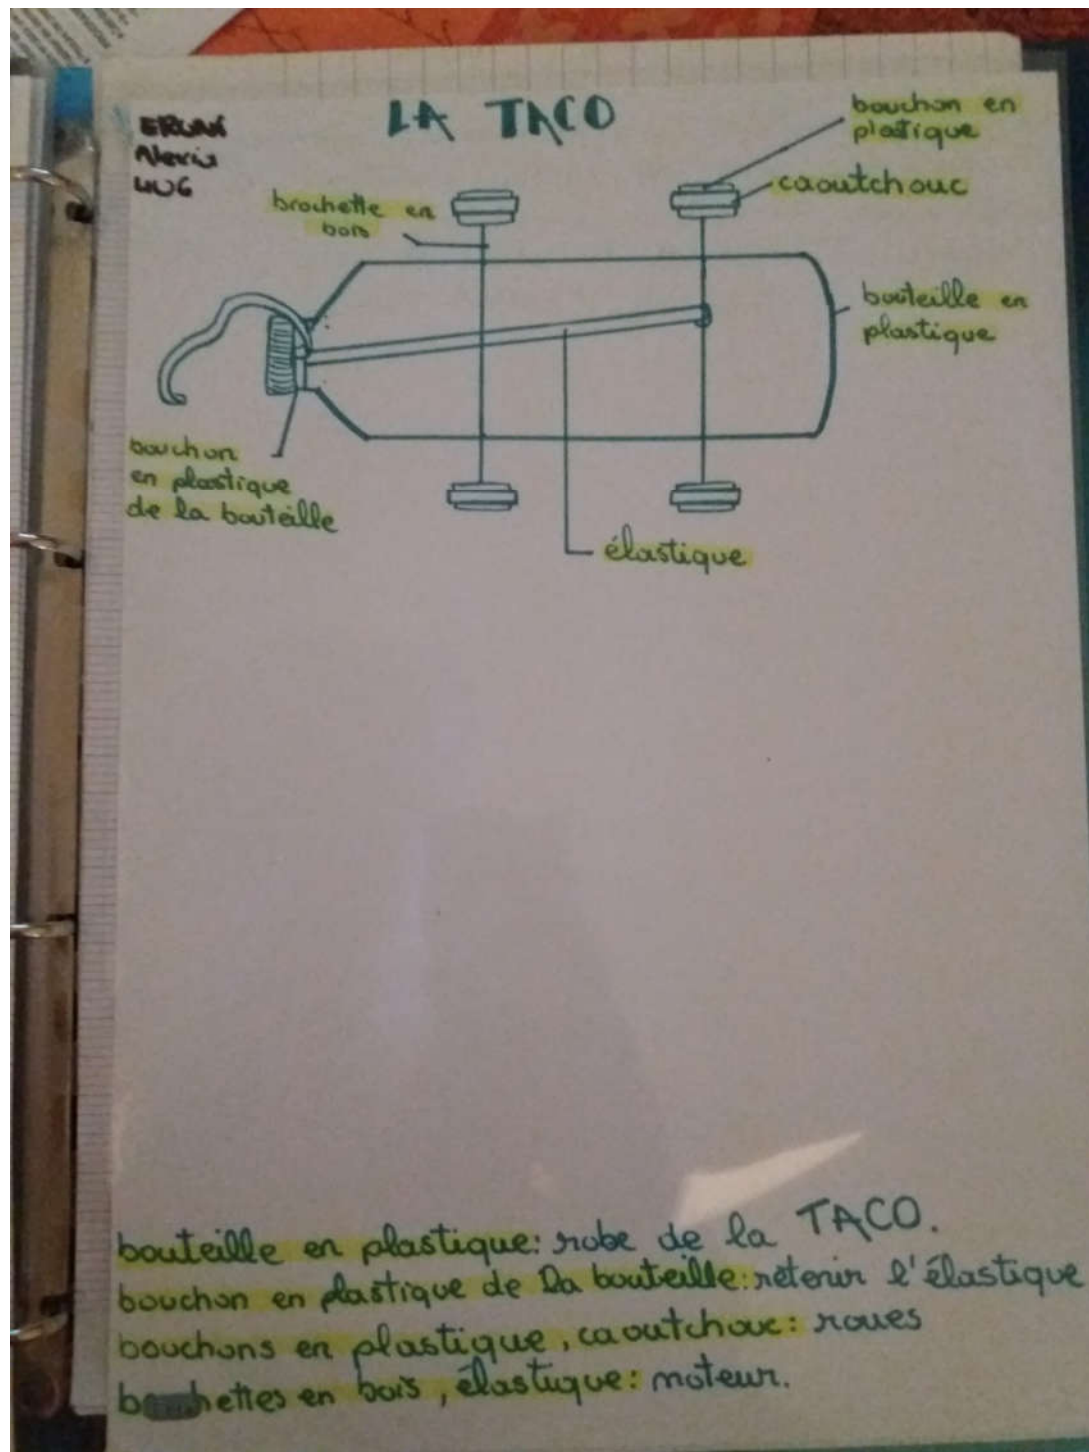 LA TACO
ERWAN
Alexis
HUG
bouchon en
plastique
caoutchouc
brochette en
bois
bouteille en
plastique
bouchon
en plastique
de la bouteille
élastique
bouteille en plastique: robe de la TACO.
bouchon en plastique de la bouteille: retenir l'élastique
bouchons en plastique, caoutchouc: roues
hettes en bois, élastique: moteur.